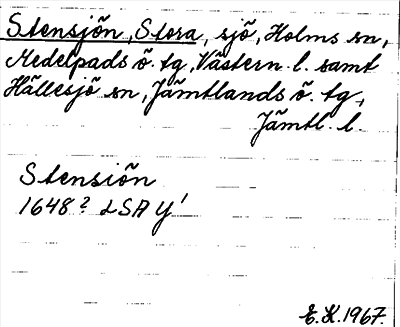 Stensjön, Stora, sjö, Holms sn,
Medelpads ö. tg, Västern. l. samt
Hällesjö sn, Jämtlands ö. tg,
Jämtl. l.
Stensiön
1648? LSA Y'
E.K. 1967.